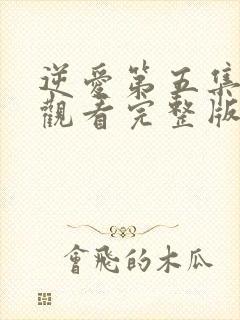 逆愛第五集
觀看完整版
會飛的木瓜